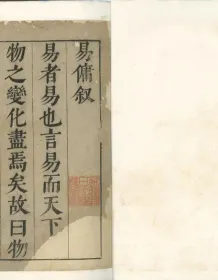 易傭叙
易者易也言易而天下
物之變化盡焉矣故曰物